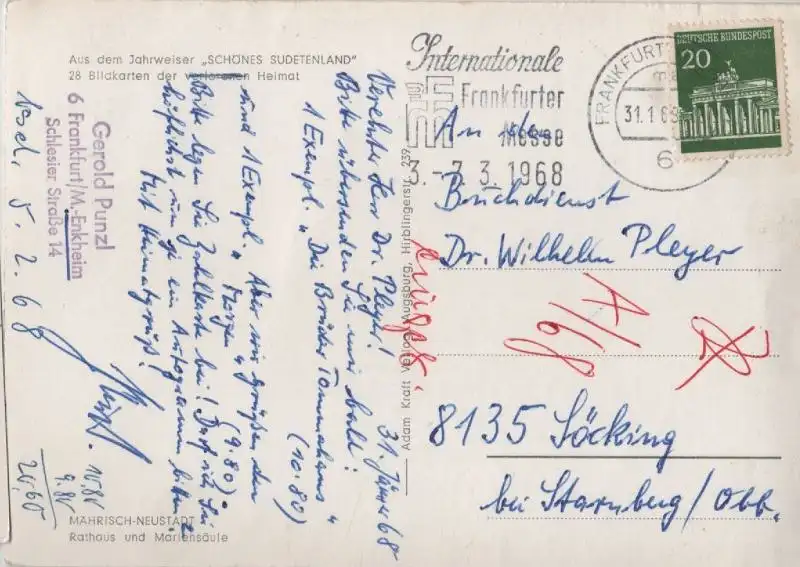 Aus dem Jahrweiser „SCHÖNES SUDETENLAND"
28 Bildkarten der verlorenen Heimat
Gerold Punzl
6 Frankfurt/M.-Enkheim
Schlesier Straße 14
31. Jänner 68
Verehrter Herr Dr. Pleyer!
Bitte übersenden Sie mir bald:
1 Exempl. „Die Brüder Tommahans"
(10.80)
und 1 Exempl. „Aber wir grüßen den
Morgen" (9.80).
Bitte legen Sie Zahlkarte bei! Darf ich Sie
höflichst um je ein Autogramm bitten?
Mit Heimatgruß!
5. 2. 68
10.80
9.80
20,60
MÄHRISCH-NEUSTADT
Rathaus und Mariensäule
Adam Kraft Verlag, Augsburg, Hirblingerstr. 239
Internationale
Frankfurter
Messe
3.-7.3.1968
FRANKFURT
31.1.68
6
DEUTSCHE BUNDESPOST
20
An den
Buchdienst
Dr. Wilhelm Pleyer
A/68
8135 Söcking
bei Starnberg/Obb.